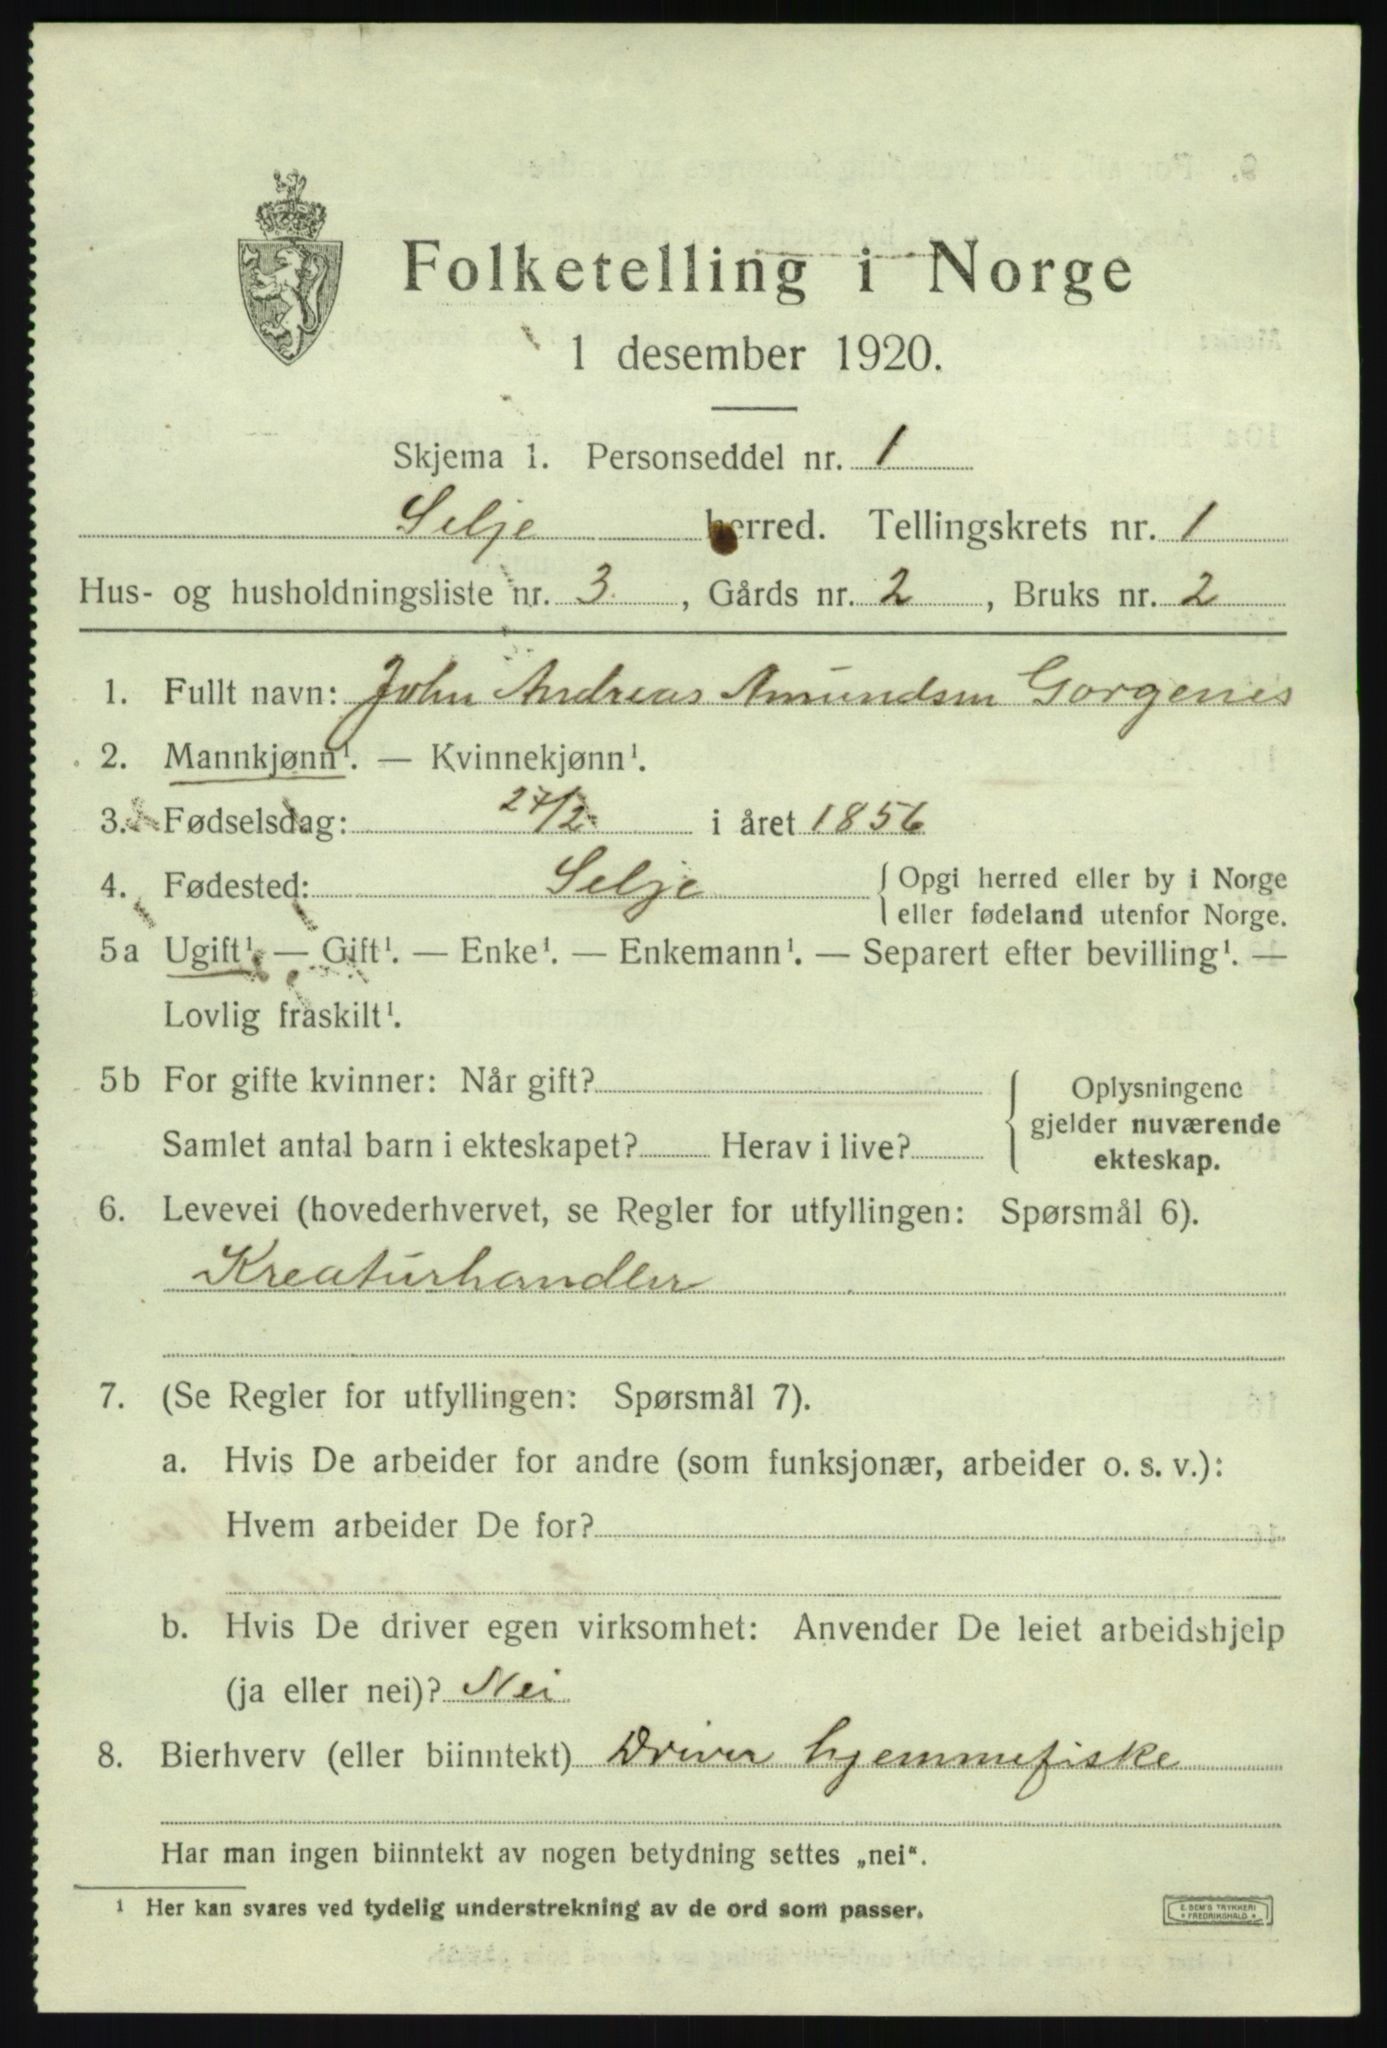 Folketelling i Norge
1 desember 1920.
Skjema 1. Personseddel nr. 1
Selje herred. Tellingskrets nr. 1
Hus- og husholdningsliste nr. 3, Gårds nr. 2, Bruks nr. 2
1. Fullt navn: John Andreas Amundsen Gorgenes
2. Mannkjønn¹. — Kvinnekjønn¹.
3. Fødselsdag: 27/2 i året 1856
4. Fødested: Selje { Opgi herred eller by i Norge
eller fødeland utenfor Norge.
5a Ugift¹. — Gift¹. — Enke¹. — Enkemann¹. — Separert efter bevilling¹. —
Lovlig fraskilt¹.
5b For gifte kvinner: Når gift?
Samlet antal barn i ekteskapet? Herav i live?
Oplysningene
gjelder nuværende
ekteskap.
6. Levevei (hovederhvervet, se Regler for utfyllingen: Spørsmål 6).
Kreaturhandler
7. (Se Regler for utfyllingen: Spørsmål 7).
a. Hvis De arbeider for andre (som funksjonær, arbeider o. s. v.):
Hvem arbeider De for?
b. Hvis De driver egen virksomhet: Anvender De leiet arbeidshjelp
(ja eller nei)? Nei
8. Bierhverv (eller biinntekt) Driver hjemmefiske
Har man ingen biinntekt av nogen betydning settes „nei“.
¹ Her kan svares ved tydelig understrekning av de ord som passer.
E. SEM'S TRYKKERI
FREDRIKSHALD